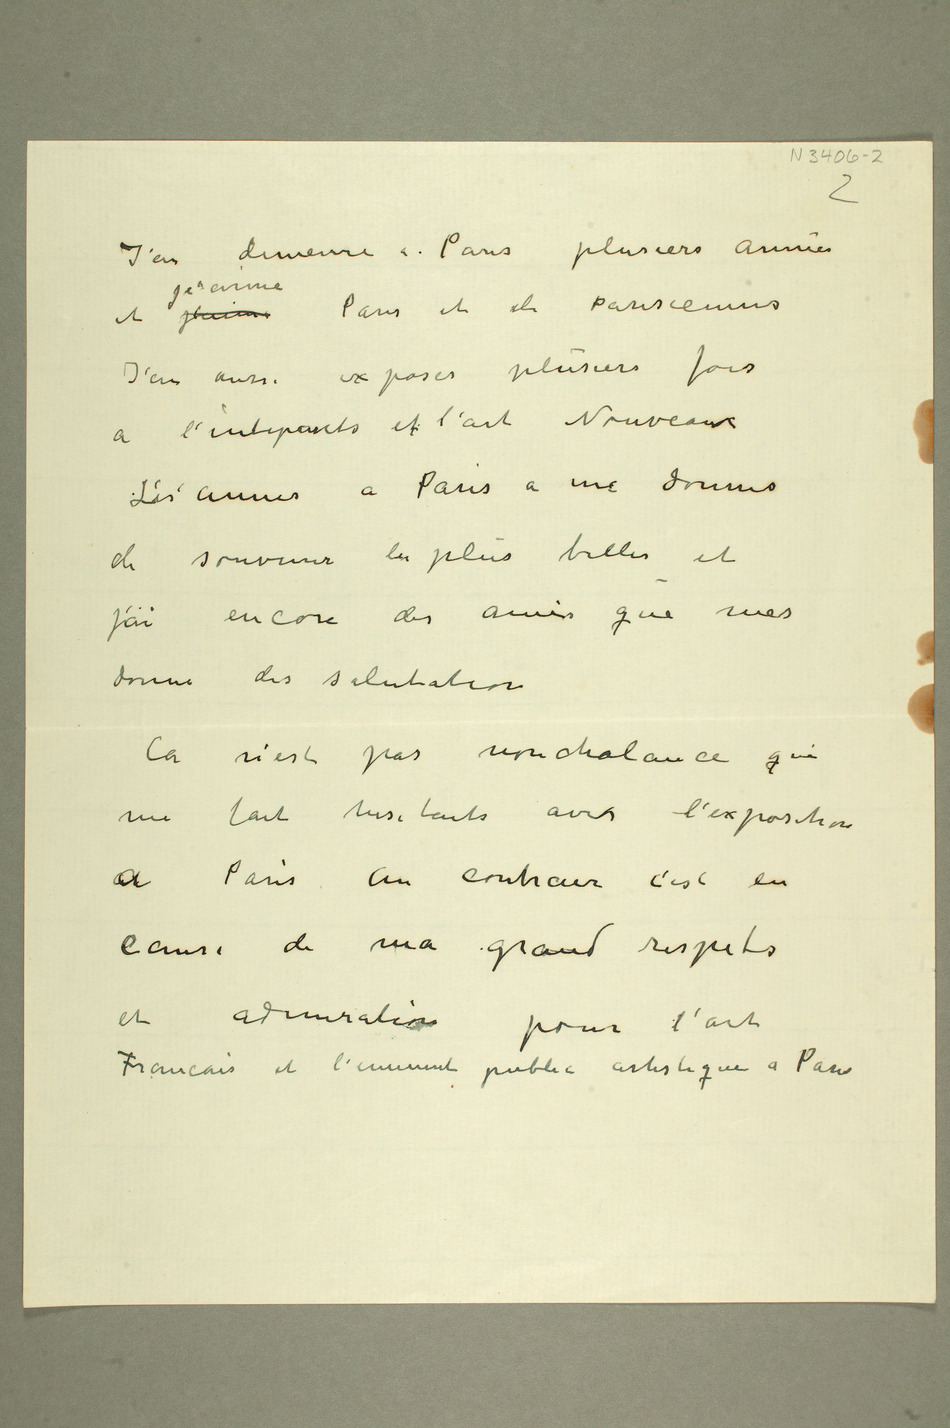 N 3406-2
2
J'ai demeure a Paris plusiers annes
et j'aime Paris et de Parisiennes
J'ai aussi exposes plusiers fois
a l'intepants et l'art Nouveaux
Les annes a Paris a me donnes
de souvenir les plus belles et
j'ai encore des amies que mes
donne des salutation
Ca n'est pas nonchalance que
me fait hesitants avec l'exposition
a Paris Au contraire c'est en
cause de ma grand respets
et admiration pour l'art
Francais et l'eminent public artistique a Paris